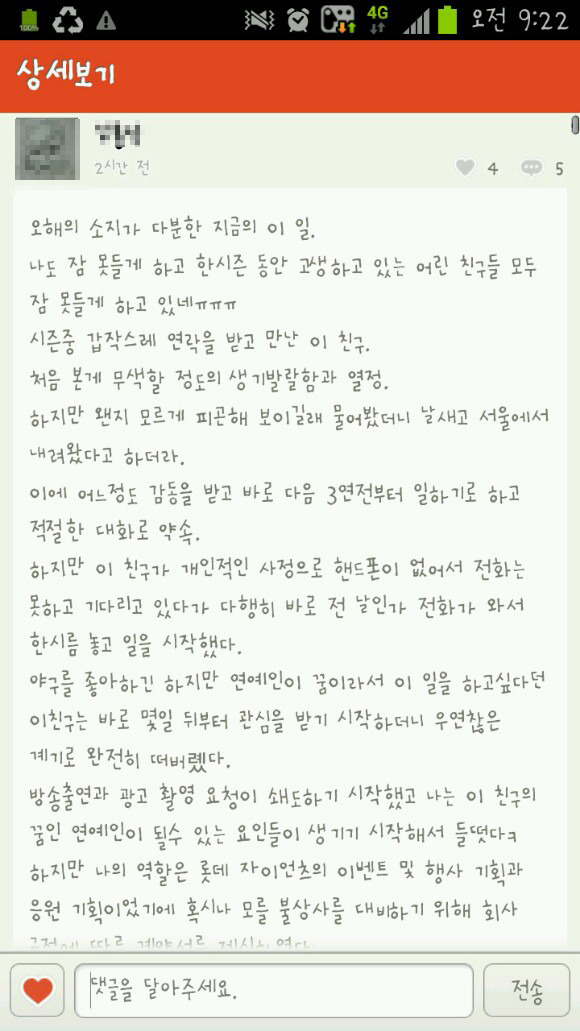 100%
4G
오전 9:22
상세보기
2시간 전
4
5
오해의 소지가 다분한 지금의 이 일.
나도 잠 못들게 하고 한시즌 동안 고생하고 있는 어린 친구들 모두
잠 못들게 하고 있네ㅠㅠㅠ
시즌중 갑작스레 연락을 받고 만난 이 친구.
처음 본게 무색할 정도의 생기발랄함과 열정.
하지만 왠지 모르게 피곤해 보이길래 물어봤더니 날새고 서울에서
내려왔다고 하더라.
이에 어느정도 감동을 받고 바로 다음 3연전부터 일하기로 하고
적절한 대화로 약속.
하지만 이 친구가 개인적인 사정으로 핸드폰이 없어서 전화는
못하고 기다리고 있다가 다행히 바로 전 날인가 전화가 와서
한시름 놓고 일을 시작했다.
야구를 좋아하긴 하지만 연예인이 꿈이라서 이 일을 하고싶다던
이친구는 바로 몇일 뒤부터 관심을 받기 시작하더니 우연찮은
계기로 완전히 떠버렸다.
방송출연과 광고 촬영 요청이 쇄도하기 시작했고 나는 이 친구의
꿈인 연예인이 될수 있는 요인들이 생기기 시작해서 들떳다ㅋ
하지만 나의 역할은 롯데 자이언츠의 이벤트 및 행사 기획과
응원 기획이었기에 혹시나 모를 불상사를 대비하기 위해 회사
댓글을 달아주세요.
전송